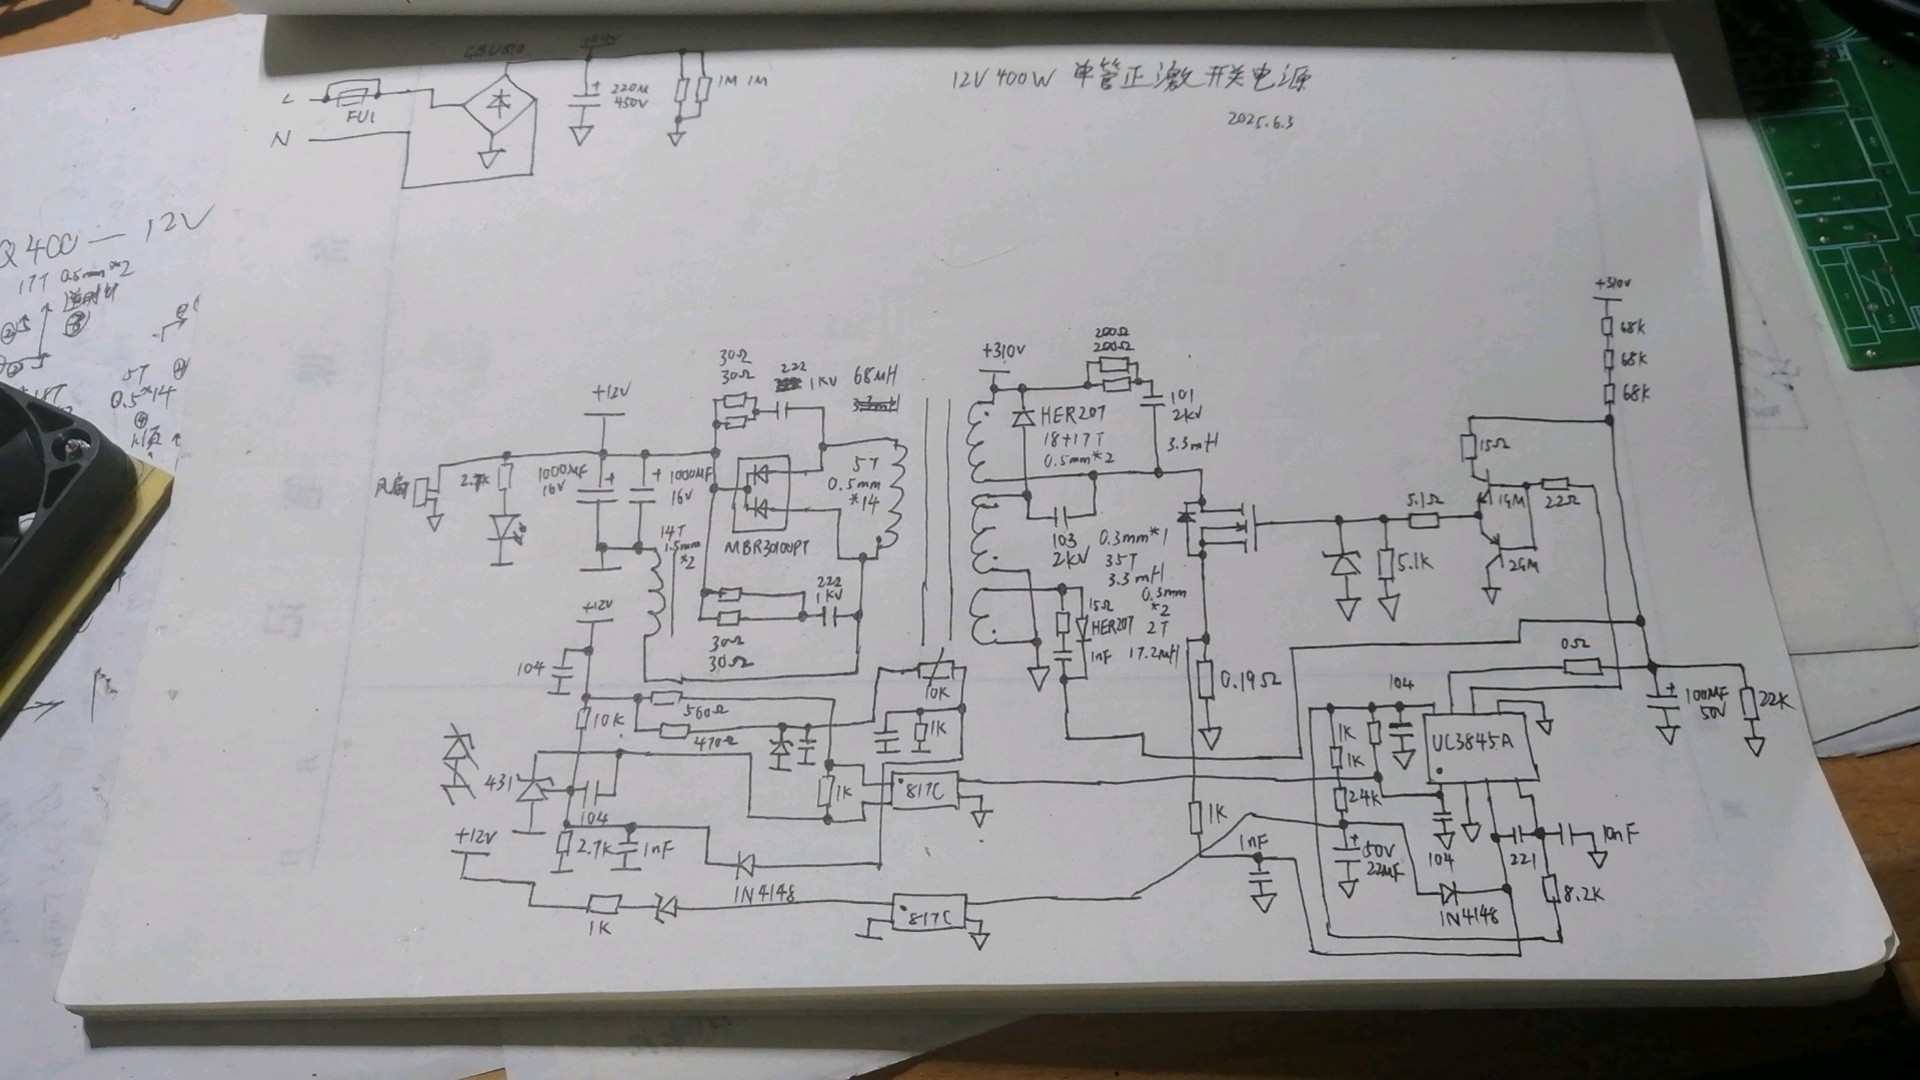 12V 400W 单管正激开关电源
2025.6.3
L
N
FU1
220M
450V
1M 1M
Q400—12V
17T 0.5mm*2
5T
0.5*14
+310V
68K
68K
68K
+12V
30Ω
30Ω
222
1KV
68uH
+310V
200Ω
200Ω
101
2kV
3.3mH
HER207
18+17T
0.5mm*2
15Ω
风扇
2.7K
1000MF
16V
1000MF
16V
5T
0.5mm
*14
MBR30100PT
14T
1.5mm
*2
103
2kV
0.3mm*1
35T
3.3mH
0.3mm
*2
2T
17.2mH
15Ω
HER207
1nF
5.1Ω
1GM
22Ω
5.1K
2GM
222
1KV
30Ω
30Ω
+12V
104
10K
0.19Ω
0Ω
104
100MF
50V
22K
560Ω
10K
470Ω
1K
1K
1K
UC3845A
431
104
1K
817C
24K
2.7K
1nF
1N4148
+12V
1K
817C
1K
1nF
50V
22MF
104
221
10nF
1N4148
8.2K